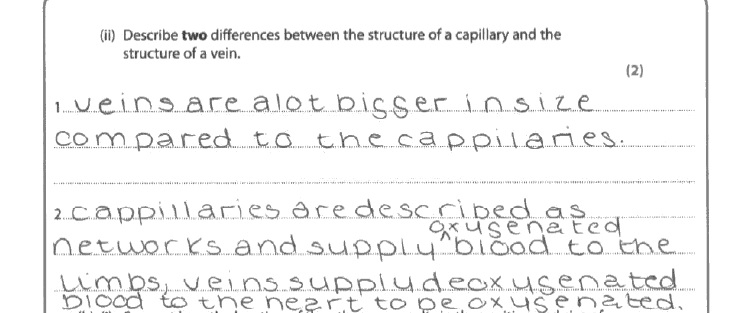 (ii) Describe two differences between the structure of a capillary and the
structure of a vein.
(2)
1 veins are alot bigger in size
compared to the cappilaries.
2 cappillaries are described as
networks and supply ^oxusenated blood to the
limbs, veins supply deoxusenated
blood to the heart to be oxusenated.